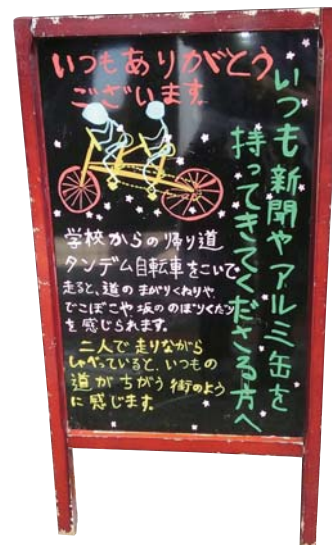 いつもありがとう
ございます
いつも新聞やアルミ缶を
持ってきてくださる方へ
学校からの帰り道
タンデム自転車をこいで
走ると、道のまがりくねりや、
でこぼこや坂ののぼりくだり
を感じられます。
二人で走りながら
しゃべっていると、いつもの
道がちがう街のよう
に感じます。